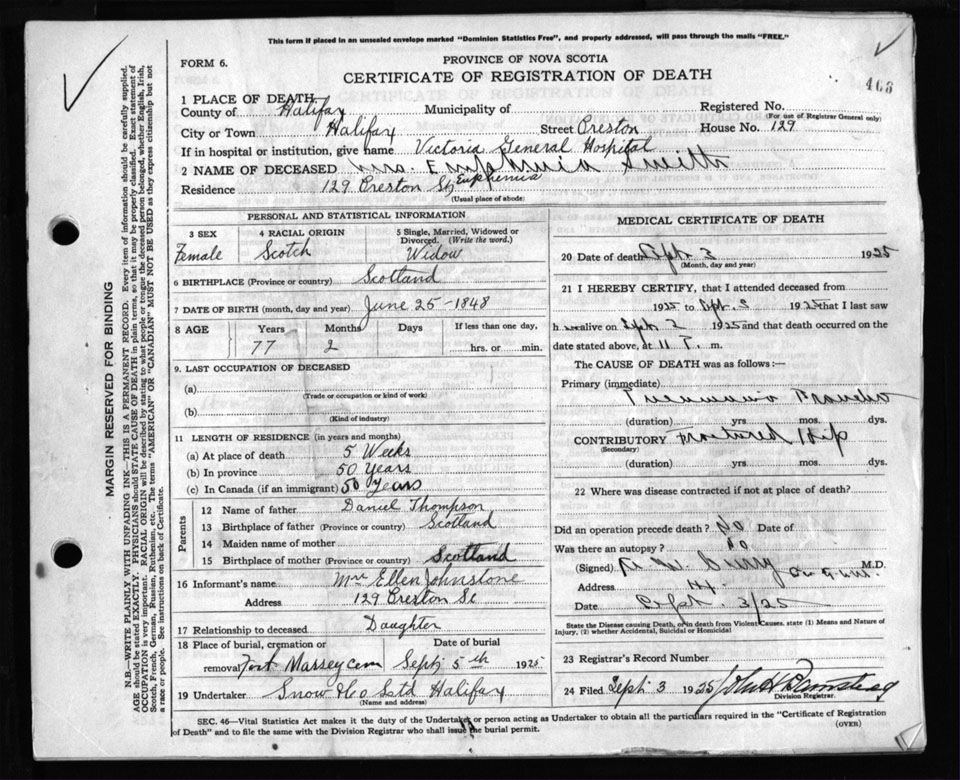 This form if placed in an unsealed envelope marked "Dominion Statistics Free", and properly addressed, will pass through the mails "FREE."
FORM 6.
PROVINCE OF NOVA SCOTIA
CERTIFICATE OF REGISTRATION OF DEATH
468
1 PLACE OF DEATH
County of Halifax Municipality of Registered No.
(For use of Registrar General only)
City or Town Halifax Street Preston House No. 129
If in hospital or institution, give name Victoria General Hospital
2 NAME OF DECEASED Mrs. Euphemia Smith
Euphemia
Residence 129 Preston St
(Usual place of abode)
PERSONAL AND STATISTICAL INFORMATION
3 SEX 4 RACIAL ORIGIN 5 Single, Married, Widowed or Divorced. (Write the word.)
Female Scotch Widow
6 BIRTHPLACE (Province or country) Scotland
7 DATE OF BIRTH (month, day and year) June 25-1848
8 AGE Years Months Days If less than one day,
77 2 hrs. or min.
9. LAST OCCUPATION OF DECEASED
(a)
(Trade or occupation or kind of work)
(b)
(Kind of industry)
11 LENGTH OF RESIDENCE (in years and months)
(a) At place of death 5 Weeks
(b) In province 50 Years
(c) In Canada (if an immigrant) 50 Years
Parents
12 Name of father Daniel Thompson
13 Birthplace of father (Province or country) Scotland
14 Maiden name of mother
15 Birthplace of mother (Province or country) Scotland
16 Informant's name Mrs Ellen Johnstone
Address 129 Preston St
17 Relationship to deceased Daughter
18 Place of burial, cremation or Date of burial
removal Fort Massey cem Sept 5th 1925
19 Undertaker Snow & Co Ltd Halifax
(Name and address)
MEDICAL CERTIFICATE OF DEATH
20 Date of death Sept. 3 1925
(Month, day and year)
21 I HEREBY CERTIFY, that I attended deceased from
1925 to Sept. 3 1925 that I last saw
h er alive on Sept 2 1925 and that death occurred on
date stated above, at 11 P. m.
The CAUSE OF DEATH was as follows:—
Primary (immediate)
Pneumonia Broncho
(duration) yrs mos. dys.
CONTRIBUTORY Fractured Hip
(Secondary)
(duration) yrs. mos. dys.
22 Where was disease contracted if not at place of death?
Did an operation precede death? No Date of
Was there an autopsy? No
(Signed) M.D.
Address
Date Sept. 3/25
State the Disease causing Death, or in death from Violent Causes, state (1) Means and Nature of
Injury, (2) whether Accidental, Suicidal or Homicidal
23 Registrar's Record Number
24 Filed Sept 3 1925 John H Barnstead
Division Registrar.
SEC. 46—Vital Statistics Act makes it the duty of the Undertaker or person acting as Undertaker to obtain all the particulars required in the "Certificate of Registration
of Death" and to file the same with the Division Registrar who shall issue the burial permit.
(OVER)
MARGIN RESERVED FOR BINDING
N.B.—WRITE PLAINLY WITH UNFADING INK—THIS IS A PERMANENT RECORD. Every item of information should be carefully supplied.
AGE should be stated EXACTLY. PHYSICIANS should STATE CAUSE OF DEATH in plain terms, so that it may be properly classified. Exact statement of
OCCUPATION is very important. RACIAL ORIGIN will be described by stating to what people or tongue the deceased person belonged, whether English, Irish,
Scotch, French, German, Russian, Ruthenian, etc. The terms "AMERICAN" OR "CANADIAN" MUST NOT BE USED as they express citizenship but not
a race or people. See instructions on back of Certificate.